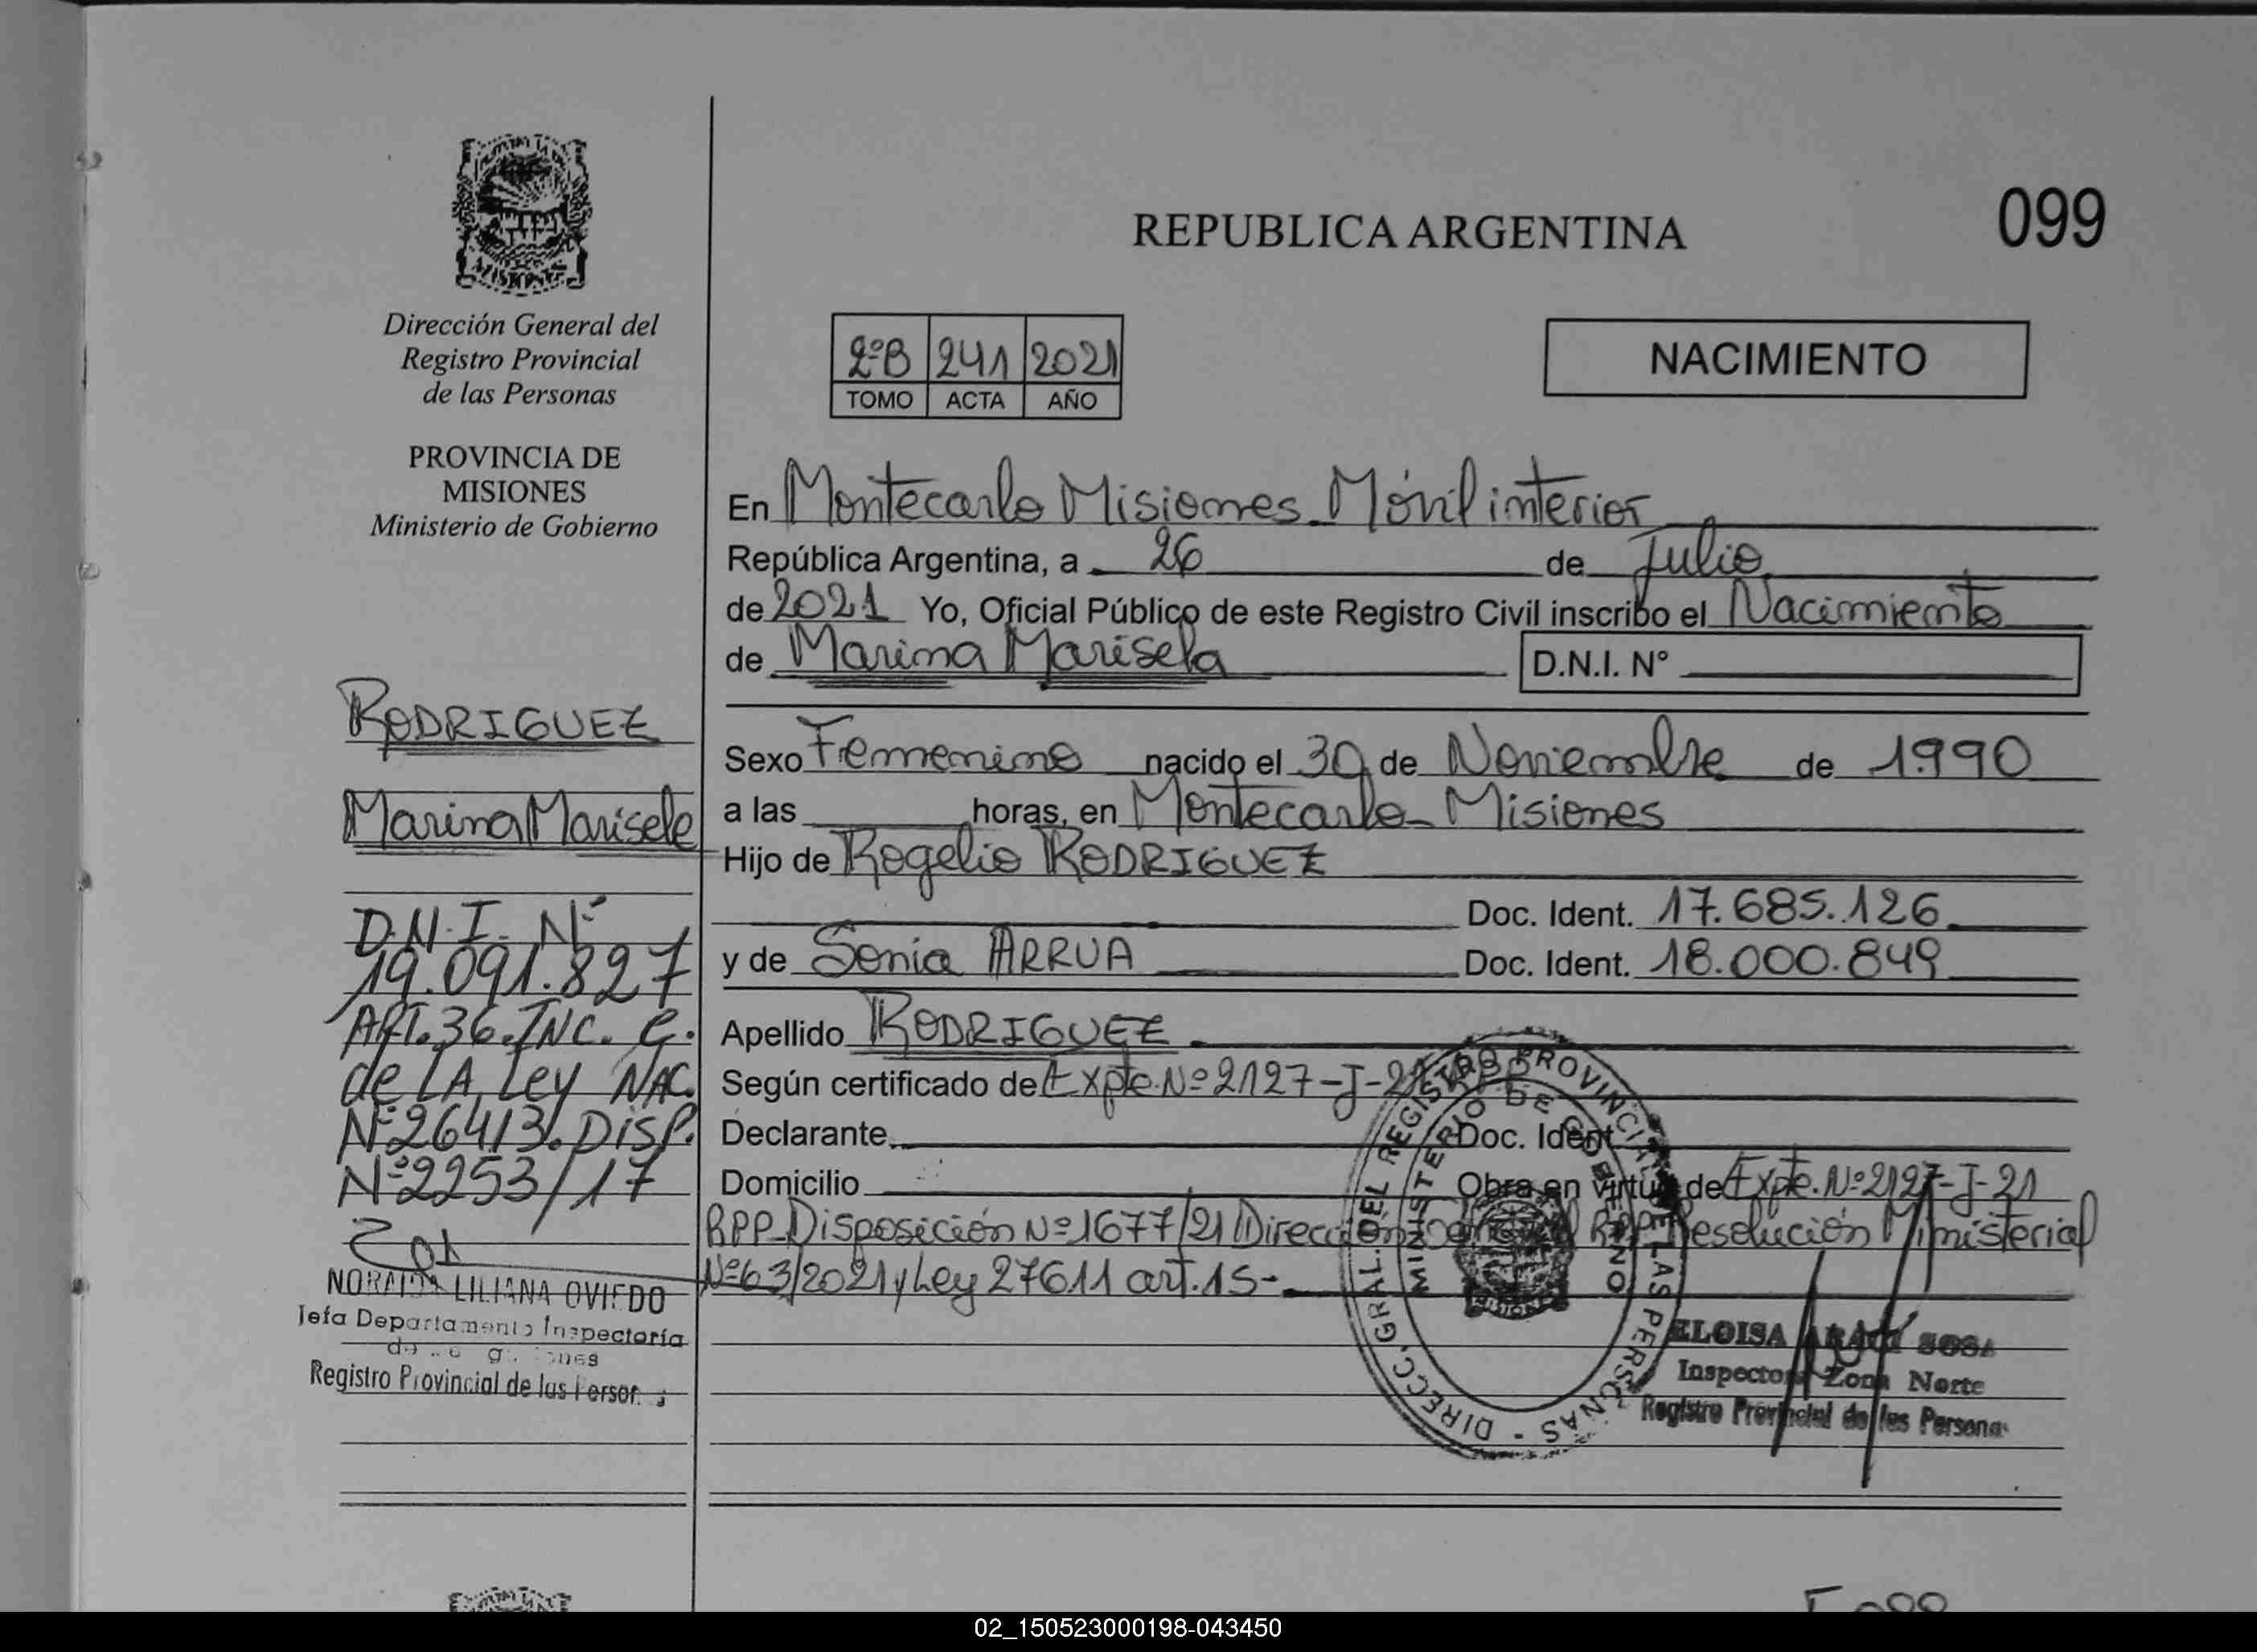 REPUBLICA ARGENTINA
099
Dirección General del
Registro Provincial
de las Personas
PROVINCIA DE
MISIONES
Ministerio de Gobierno
2ºB 241 2021
TOMO ACTA AÑO
NACIMIENTO
En Montecarlo Misiones Móvil interior
República Argentina, a 26 de Julio
de 2021 Yo, Oficial Público de este Registro Civil inscribo el Nacimiento
de Marina Marisela D.N.I. N°
Sexo Femenino nacido el 30 de Noviembre de 1990
a las horas, en Montecarlo Misiones
Hijo de Rogelio RODRIGUEZ
Doc. Ident. 17.685.126
y de Sonia ARRUA Doc. Ident. 18.000.849
Apellido RODRIGUEZ
Según certificado de Expte. Nº 2127-J-21
Declarante Doc. Ident.
Domicilio Obra en virtud de Expte. Nº 2127-J-21
RPP Disposición Nº 1677/21 Dirección RPP Resolución Ministerial
Nº 63/2021 y Ley 27611 art. 15-
RODRIGUEZ
Marina Marisela
D.N.I. Nº
19.091.827
ART. 36. INC. e.
de LA Ley NAC.
Nº 26413. DISP.
Nº 2253/17
NORAIDA LILIANA OVIEDO
Jefa Departamento Inspectoría
Registro Provincial de las Personas
DIRECC. GRAL. DEL REGISTRO PROVINCIAL DE LAS PERSONAS
MINISTERIO DE GOBIERNO
MISIONES
ELOISA SOSA
Inspectora Zona Norte
Registro Provincial de las Personas
02_150523000198-043450